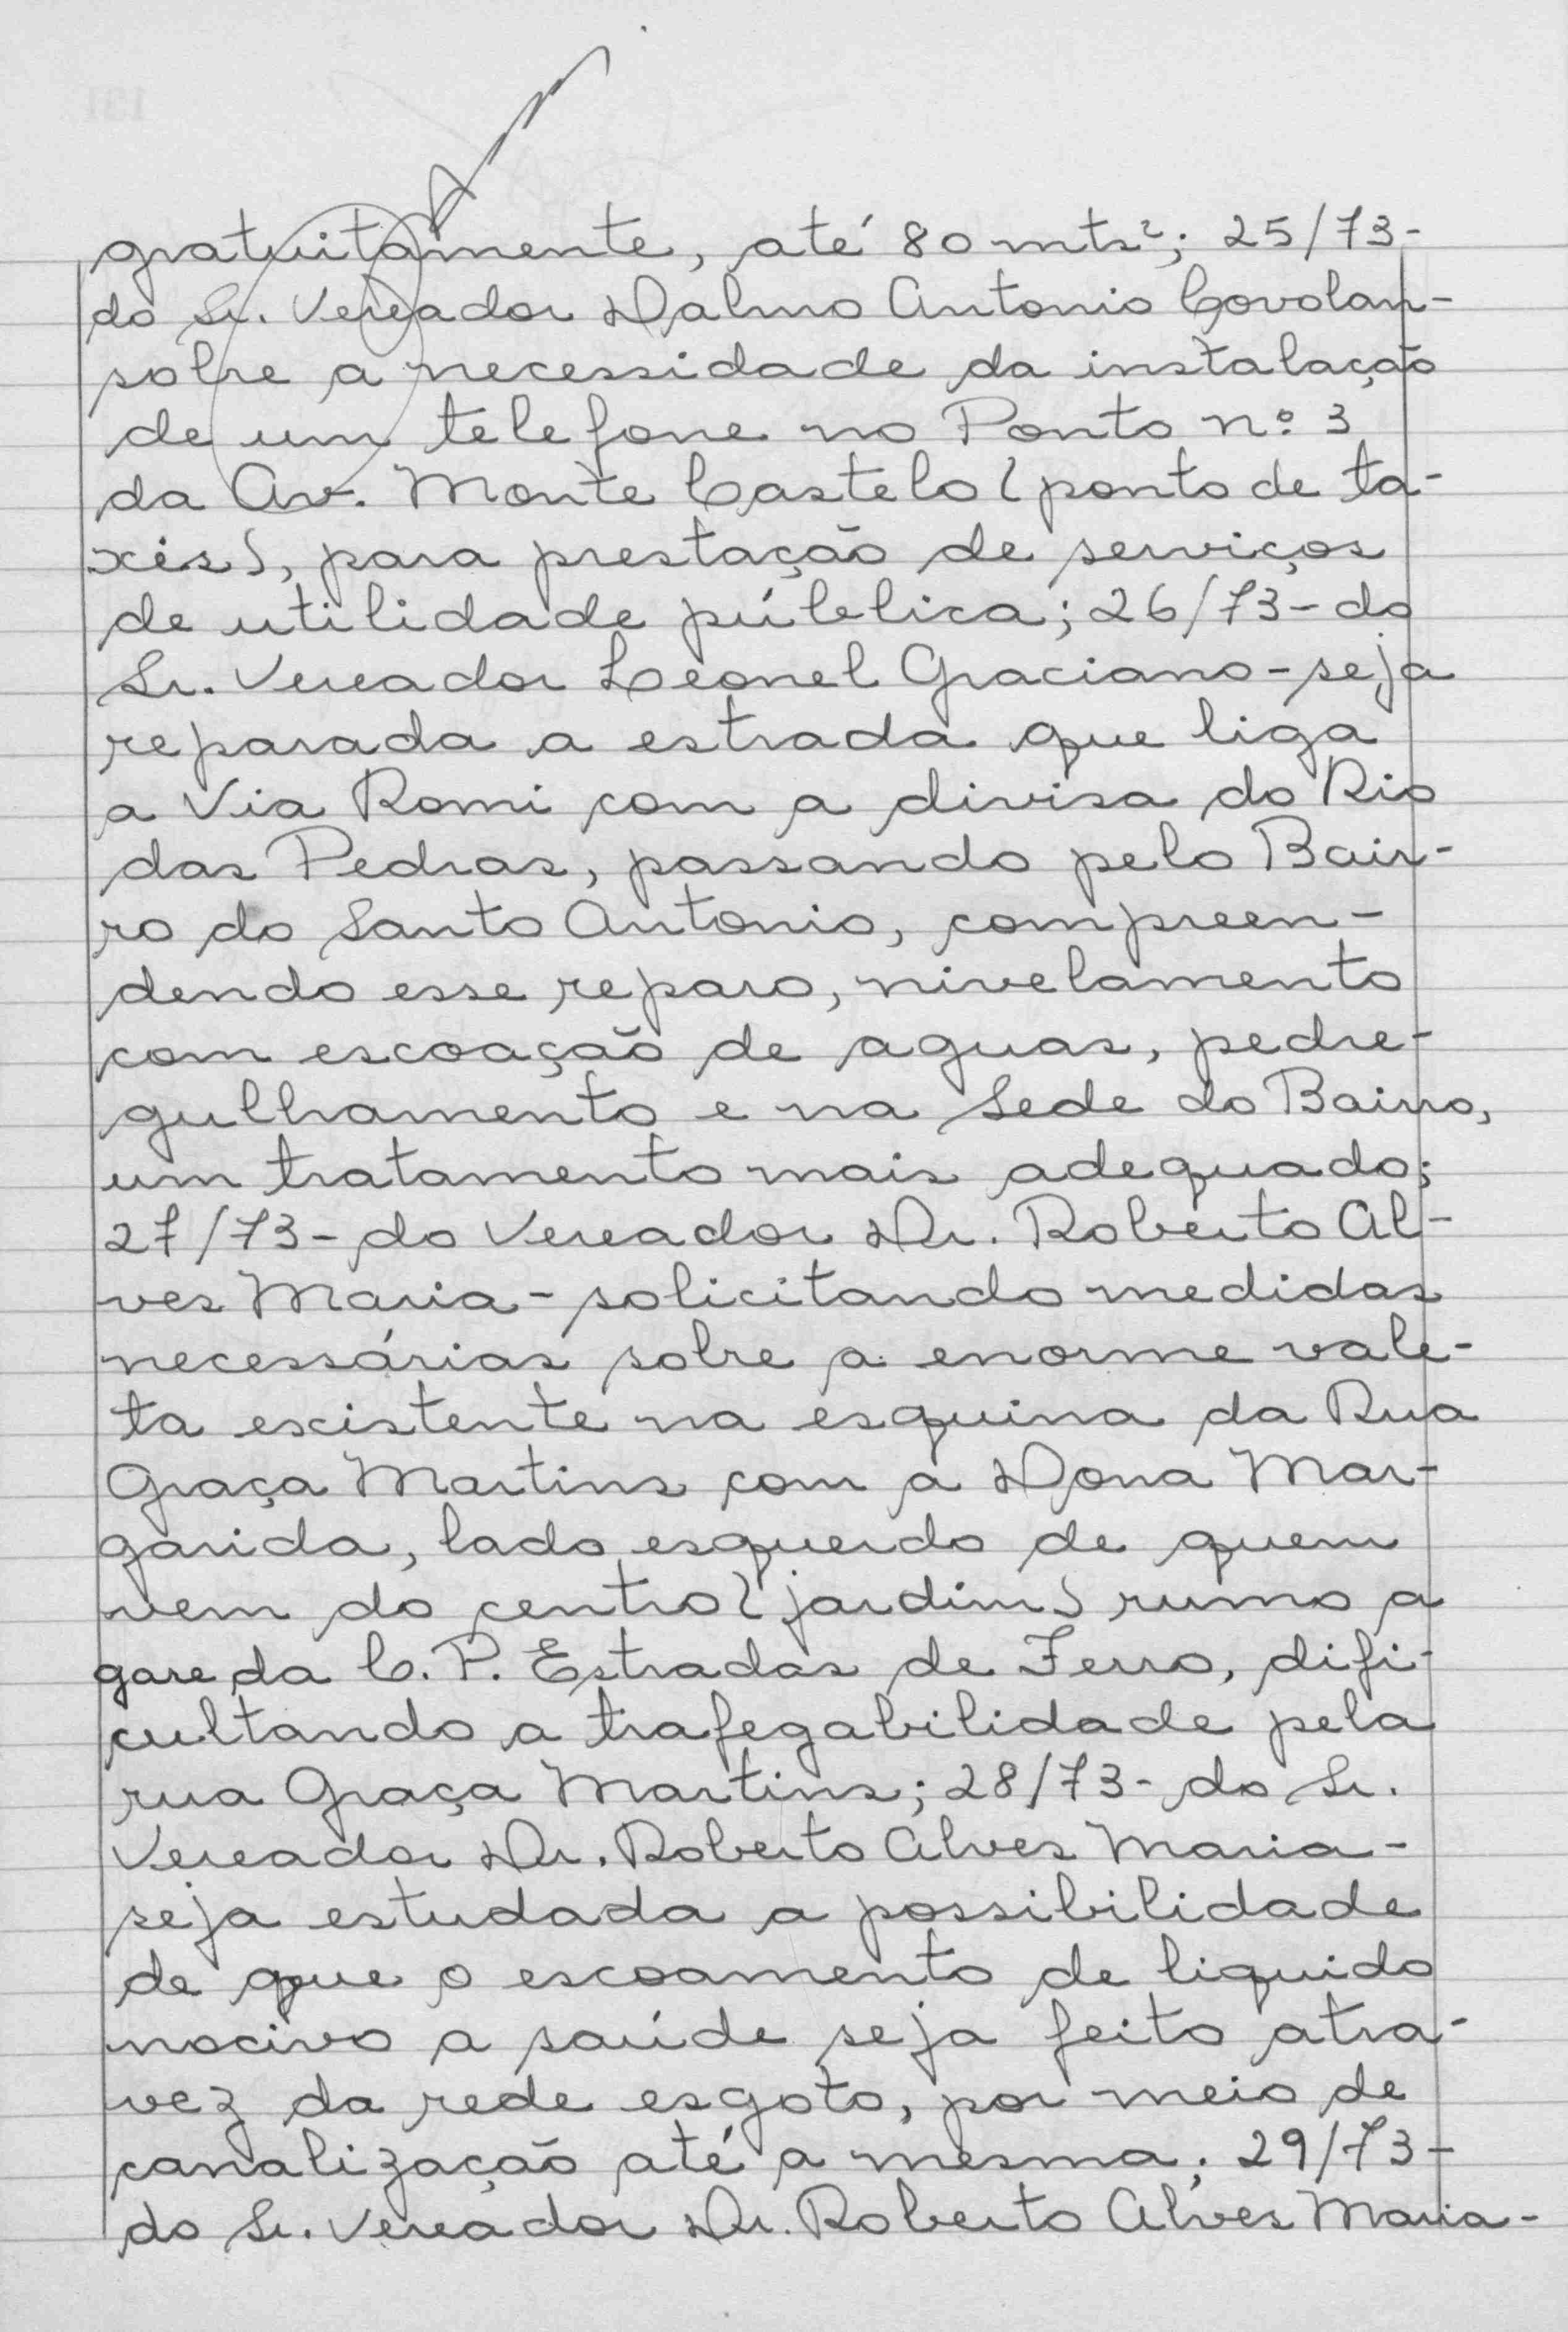 gratuitamente, até 80 mts²; 25/73-
do Sr. Vereador Dalmo Antonio Covolan-
sobre a necessidade da instalação
de um telefone no Ponto nº 3
da Av. Monte Castelo (ponto de ta-
xis), para prestação de serviços
de utilidade pública; 26/73- do
Sr. Vereador Leonel Graciano - seja
reparada a estrada que liga
a Via Romi com a divisa do Rio
das Pedras, passando pelo Bair-
ro do Santo Antonio, compreen-
dendo esse reparo, nivelamento
com escoação de aguas, pedre-
gulhamento e na Sede do Bairro,
um tratamento mais adequado;
27/73- do Vereador Dr. Roberto Al-
ves Maria - solicitando medidas
necessárias sobre a enorme vale-
ta existente na esquina da Rua
Graça Martins com a Dona Mar-
garida, lado esquerdo de quem
vem do centro (jardim) rumo a
gare da C. P. Estradas de Ferro, difi-
cultando a trafegabilidade pela
rua Graça Martins; 28/73- do Sr.
Vereador Dr. Roberto Alves Maria -
seja estudada a possibilidade
de que o escoamento de liquido
nocivo a saúde seja feito atra-
vez da rede esgoto, por meio de
canalização até a mesma; 29/73-
do Sr. Vereador Dr. Roberto Alves Maria -